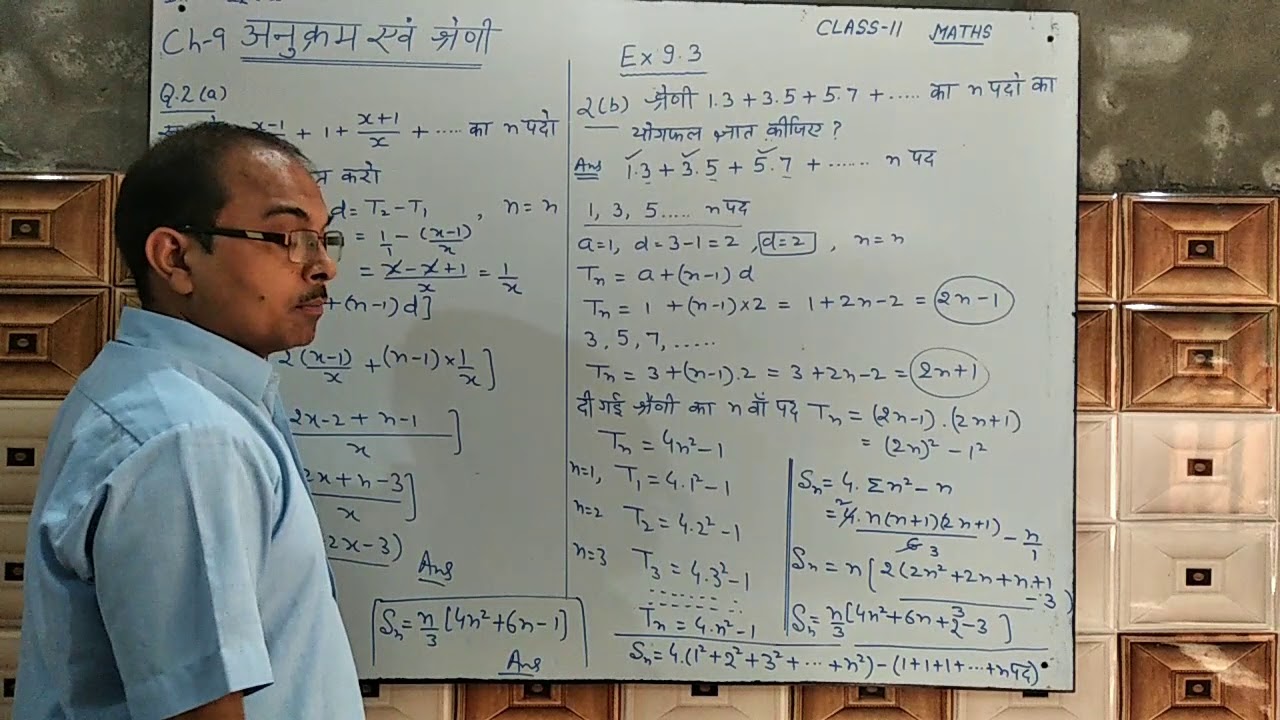 Ch-9 अनुक्रम एवं श्रेणी
CLASS-11 MATHS
Ex 9.3
Q.2(a)
x-1/x + 1 + x+1/x + ..... का n पदो
करो
d = T₂-T₁ , n = n
= 1/1 - (x-1)/x
= x-x+1/x = 1/x
+(n-1)d]
2(x-1)/x + (n-1)×1/x]
2x-2+n-1/x]
2x+n-3/x]
2x-3) Ans
Sn = n/3 [4n²+6n-1]
Ans
2(b) श्रेणी 1.3 + 3.5 + 5.7 + ..... का n पदो का
योगफल ज्ञात कीजिए ?
Ans 1.3 + 3.5 + 5.7 + ...... n पद
1, 3, 5..... n पद
a=1, d=3-1=2, d=2 , n=n
Tn = a+(n-1)d
Tn = 1 +(n-1)×2 = 1+2n-2 = 2n-1
3, 5, 7, .....
Tn = 3+(n-1).2 = 3+2n-2 = 2n+1
दी गई श्रेणी का n वाँ पद Tn = (2n-1).(2n+1)
= (2n)² - 1²
Tn = 4n²-1
n=1, T₁ = 4.1²-1
n=2 T₂ = 4.2²-1
n=3 T₃ = 4.3²-1
Tn = 4.n²-1
Sn = 4.(1²+2²+3²+...+n²)-(1+1+1+...+n पद)
Sn = 4.Σn²-n
= ²4.n(n+1)(2n+1)/6 3 - n/1
Sn = n[2(2n²+2n+n+1
-3)
3
Sn = n/3[4n²+6n+2-3]